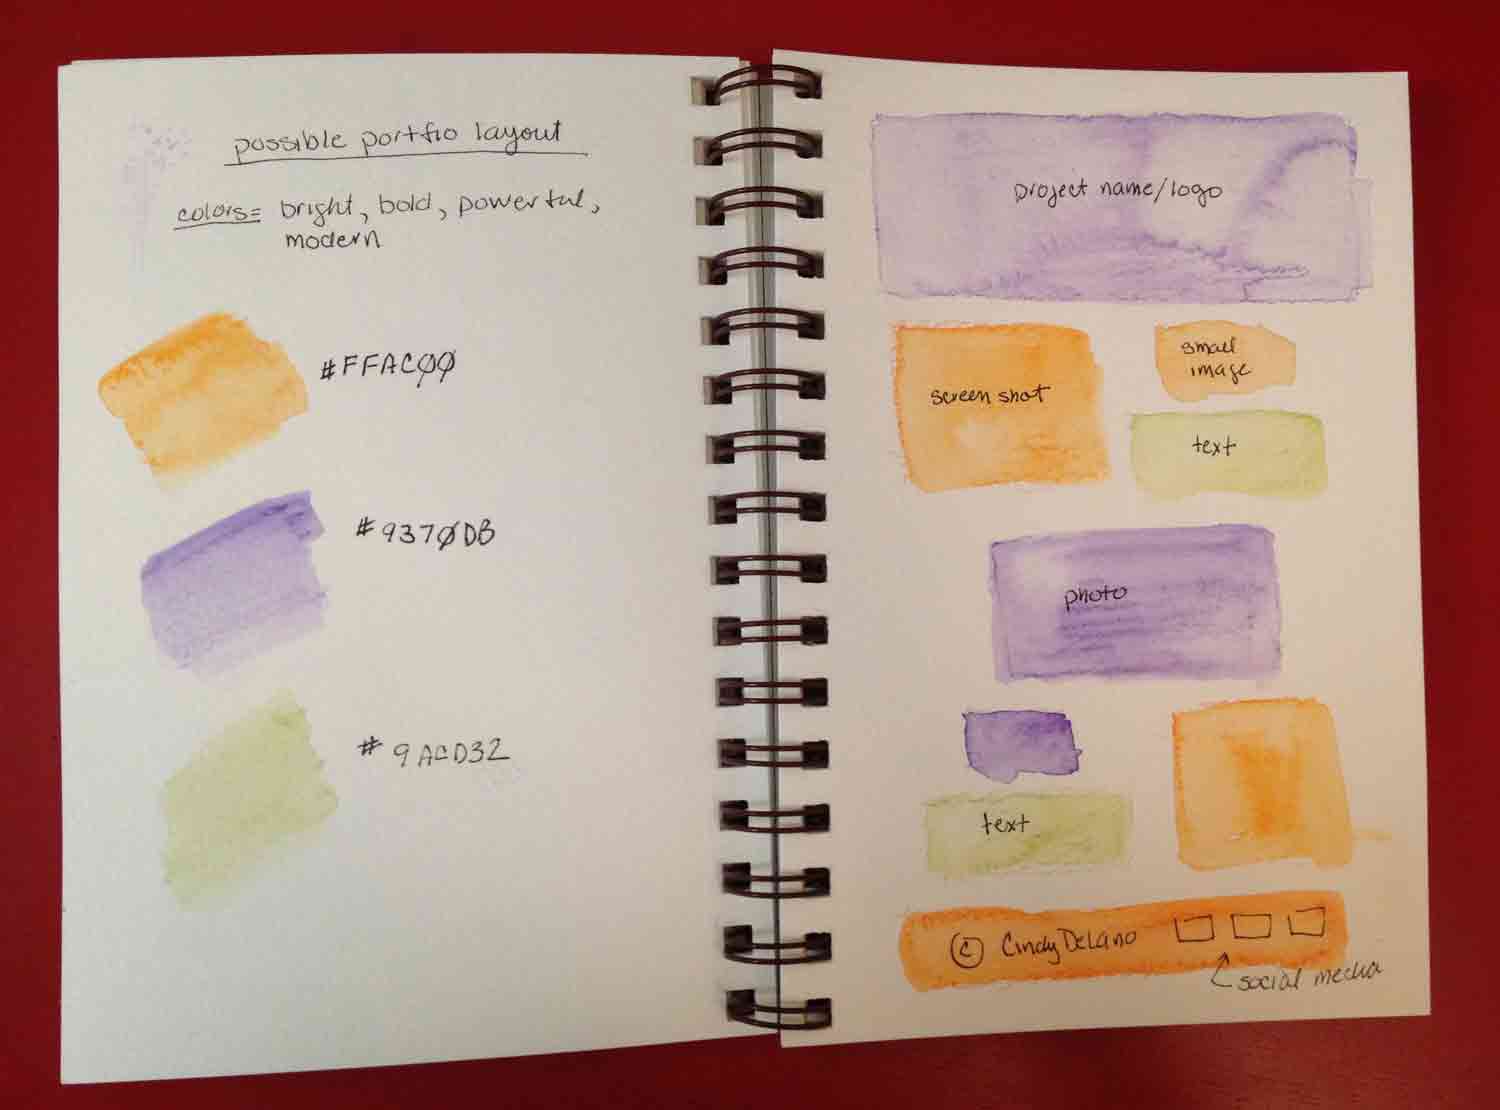 possible portfio layout
colors= bright, bold, powerful,
modern
#FFAC00
#9370DB
#9ACD32
project name/logo
screen shot
small
image
text
photo
text
© Cindy DeLano
social media